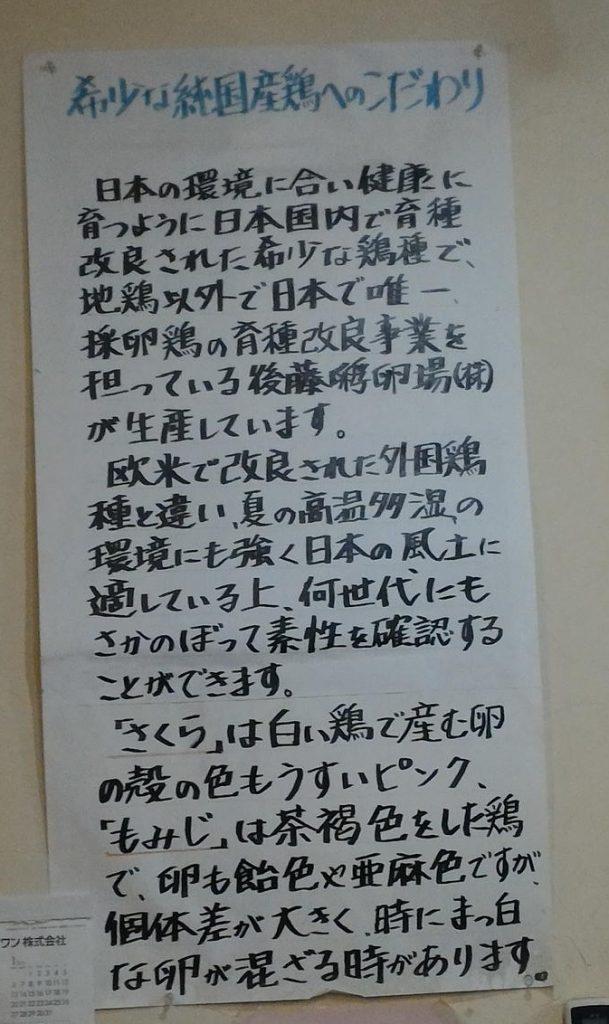 希少な純国産鶏へのこだわり
日本の環境に合い健康に
育つように日本国内で育種
改良された希少な鶏種で、
地鶏以外で日本で唯一、
採卵鶏の育種改良事業を
担っている後藤孵卵場(株)
が生産しています。
欧米で改良された外国鶏
種と違い、夏の高温多湿、の
環境にも強く日本の風土に
適している上、何世代にも
さかのぼって素性を確認する
ことができます。
「さくら」は白い鶏で産む卵
の殻の色もうすいピンク、
「もみじ」は茶褐色をした鶏
で、卵も飴色や亜麻色ですが、
個体差が大きく、時にまっ白
な卵が混ざる時があります
ワン株式会社